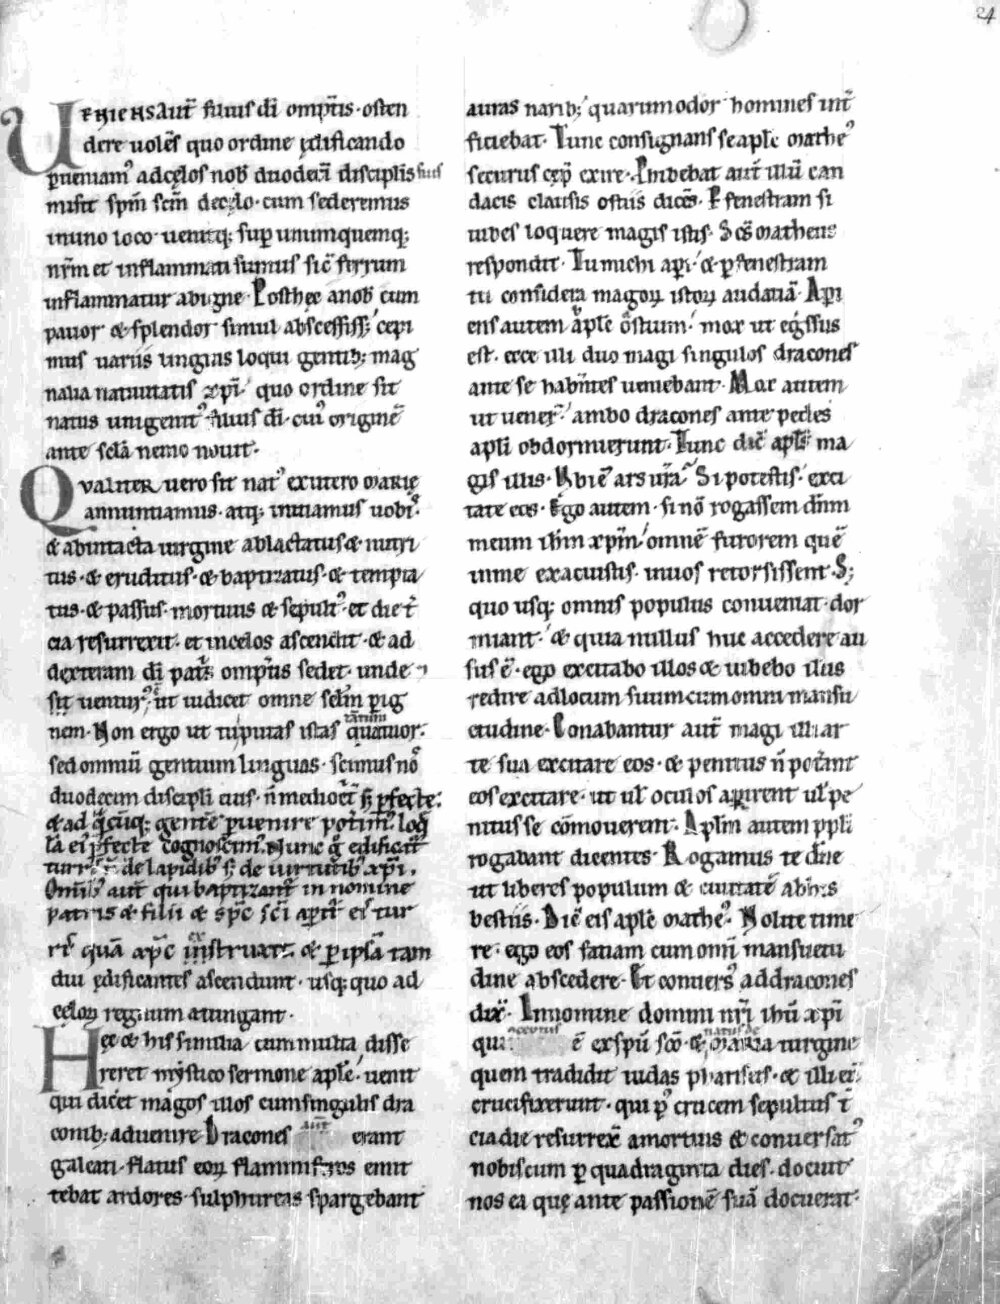 24
Veniens aut̄ filius dī omp̄tis · osten
dere uolēs quo ordine ędificando
ꝑueniamꝰ ad cęlos nob̄ duodecī discipulis suis
misit sp̄m sc̄m de cęlo · cum sederemus
in uno loco · uenitq; suꝑ unumquemq;
nr̄m et inflammati sumus sic̄ ferrum
inflammatur ab igne · Posthęc a nob̄ cum
pauor & splendor simul abscessiss; cepi
mus uariis linguis loqui gentib; mag
nalia natiuitatis xp̄i · quo ordine sit
natus unigenitꝰ filius dī · cuiꝰ originē
ante sc̄la nemo nouit ·
Qvaliter uero sit natꝰ ex utero marię
annuntiamus · atq; intimamus uobis ·
& ab intacta uirgine ablactatus & nutri
tus · & eruditus · & baptizatus · & tempta
tus · & passus · mortuus & sepultꝰ et die t̄
cia resurrexit · et in celos ascendit · & ad
dexteram dī patris omp̄tis sedet · unde
sit uenturꝰ ut iudicet omne sc̄lm ꝑ ig
nem · Non ergo ut tu putas istas tantum quatuor ·
sed omniū gentium linguas · scimus nos
duodecim discipli eius · n̄ mediocr̄t s; ꝑfecte :
& ad q̄cūq; gente ꝑuenire potim̄ loq̄
la ei ꝑfecte cognoscim̄ · Nunc q̄ edificat̄
turr n̄ de lapidibꝰ s; de uirtutibꝰ xp̄i ·
Om̄ibꝰ aut̄ qui baptizant̄ in nomine
patris & filii & sp̄c sc̄i aꝑit̄ ei tur
ris quā xp̄c exinstruxit · & ꝑ ipsā tam
diu ędificantes ascendunt · usq; quo ad
celoꝝ regnum atingant ·
Hęc & his similia cum multa disse
reret mystico sermone aplē · uenit
qui dicēt magos illos cum singulis dra
conib; aduenire Dracones aut̄ erant
galeati · flatus eoꝝ flammiferos emit
tebat ardores · sulphureas spargebant
auras narib; quarum odor homines int̄
ficiebat · Tunc consignans se aplē matheꝰ
securus cęp exire · Prohibebat aut̄ illū can
dacis clausis ostiis dicēs · P fenestram si
iubes loquere magis istis · Sc̄s matheus
respondit · Tu michi aꝑi · & ꝑ fenestram
tu considera magoꝝ istoꝝ audatiā · Aꝑi
ens autem aplē ostium · mox ut egressus
est · ecce illi duo magi singulos dracones
ante se habn̄tes ueniebant · Mox autem
ut uener̄ · ambo dracones ante pedes
apli obdormierunt · Tunc dic̄ apl̄s ma
gis illis · Vbi ē ars ur̄a · Si potestis · exci
tate eos · Ego autem · si nō rogassem dn̄m
meum ihm̄ xp̄m · omnē furorem quē
in me exacuistis · in uos retorsissent · S;
quo usq; omnis populus conueniat · dor
miant · & quia nullus huc accedere au
sus ē · ego excitabo illos & iubebo illos
redire ad locum suum cum omni mansu
etudine · Conabantur aut̄ magi illi ar
te sua excitare eos · & penitus n̄ potant
eos excitare · ut ul̄ oculos aꝑirent ul̄ pe
nitus se cōmouerent · Aplm̄ autem ppli
rogabant dicentes · Rogamus te dn̄e
ut liberes populum & ciuitatē ab his
bestiis · Dic̄ eis aplē matheꝰ · Nolite time
re · ego eos faciam cum omni mansuetu
dine abscedere · Et conuersꝰ ad dracones
dix̄ · In nomine domini nr̄i ihū xp̄i
qui conceptus ē ex spū scō · & natus de maria uirgine
quem tradidit iudas phariseis · & illi eū
crucifixerunt · qui pꝰ crucem sepultus t̄
cia die resurrex̄ a mortuis & conuersatꝰ
nobiscum ꝑ quadraginta dies · docuit
nos ea quę ante passionē suā docuerat ·